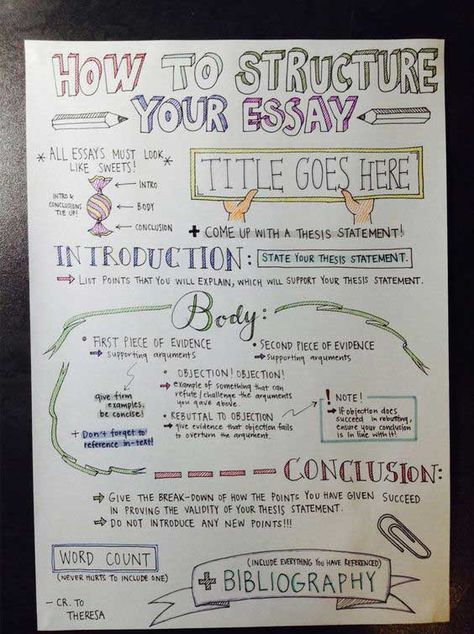 HOW TO STRUCTURE
YOUR ESSAY
* ALL ESSAYS MUST LOOK *
LIKE SWEETS!
INTRO &
CONCLUSIONS
TIE UP!
INTRO
BODY
CONCLUSION
TITLE GOES HERE
+ COME UP WITH A THESIS STATEMENT!
INTRODUCTION: STATE YOUR THESIS STATEMENT.
→ LIST POINTS THAT YOU WILL EXPLAIN, WHICH WILL SUPPORT YOUR THESIS STATEMENT.
Body:
• FIRST PIECE OF EVIDENCE
→ supporting arguments
• SECOND PIECE OF EVIDENCE
→ supporting arguments
give firm
examples,
be concise!
+ Don't forget to
reference in-text!
• OBJECTION! OBJECTION!
→ example of something that can
refute/challenge the arguments
you gave above.
• REBUTTAL TO OBJECTION
→ give evidence that objection fails
to overturn the argument.
! NOTE!
→ If objection does
succeed in rebutting,
ensure your conclusion
is in line with it!
CONCLUSION:
→ GIVE THE BREAK-DOWN OF HOW THE POINTS YOU HAVE GIVEN SUCCEED
IN PROVING THE VALIDITY OF YOUR THESIS STATEMENT.
→ DO NOT INTRODUCE ANY NEW POINTS!!!
WORD COUNT
(NEVER HURTS TO INCLUDE ONE)
(INCLUDE EVERYTHING YOU HAVE REFERENCED)
+ BIBLIOGRAPHY
- CR. TO
THERESA